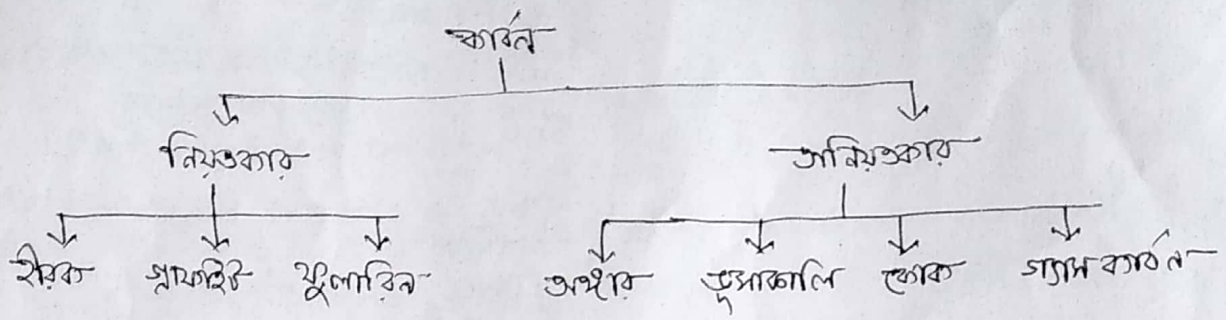 কার্বন
নিয়তকার অনিয়তকার
হীরক গ্রাফাইট ফুলারিন অঙ্গার ভূসাকালি কোক গ্যাস কার্বন